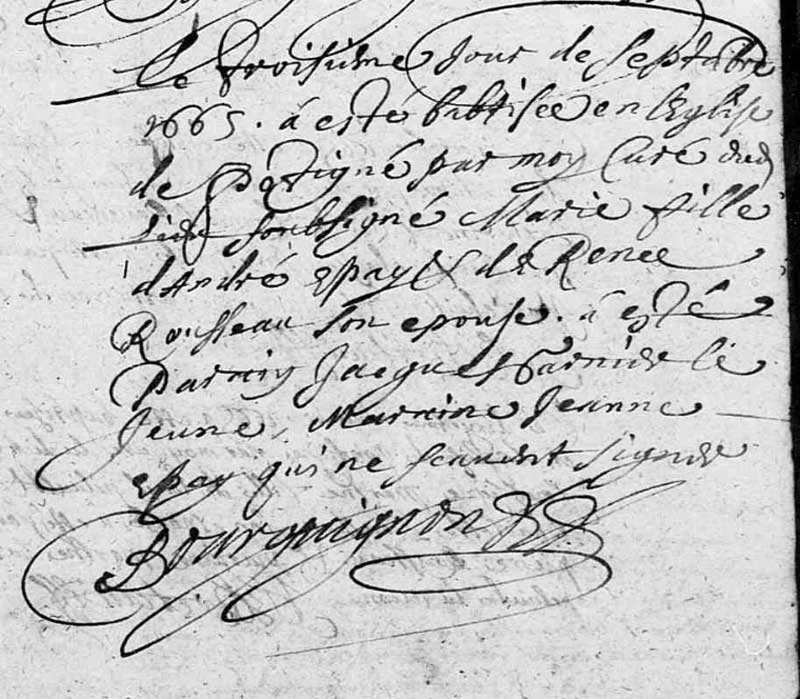 Le troisiéme Jour de septabre
1665. á esté babtisee en l'Eglise
de Partigné par moy Curé dud
lieu soubsigné Marie fille
d'André epay & de Renee
Rousseau son epouse. á esté
Parain Jacques Garnier le
Jeune, Maraine Jeanne
epay qui ne scauent signer
Bourguignon